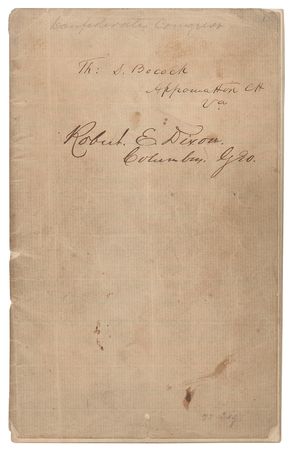 Confederate Congress
Th: S. Bocock
Appomattox CH
Va
Robert. E. Dixon.
Columbus, Geo.